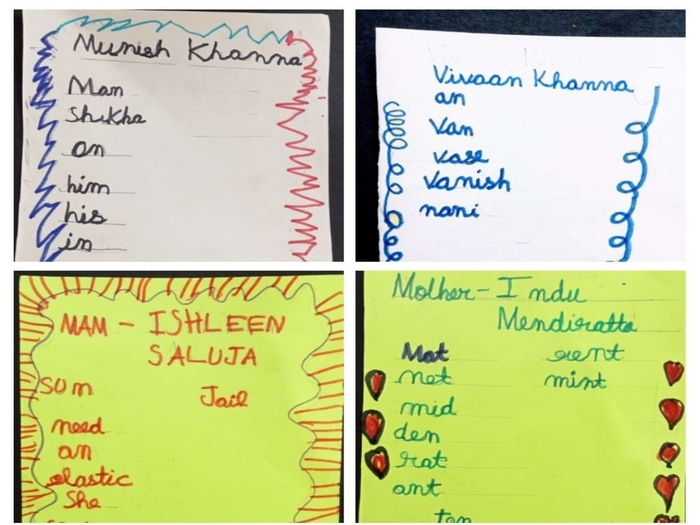 Munish Khanna
Man
Shikha
on
him
his
in
Vivaan Khanna
an
Van
vase
Vanish
nani
MAM - ISHLEEN
SALUJA
sum
Jail
need
an
elastic
She
Mother - Indu
Mendiratta
Mat
rent
net
mint
mid
den
rat
ant
ten